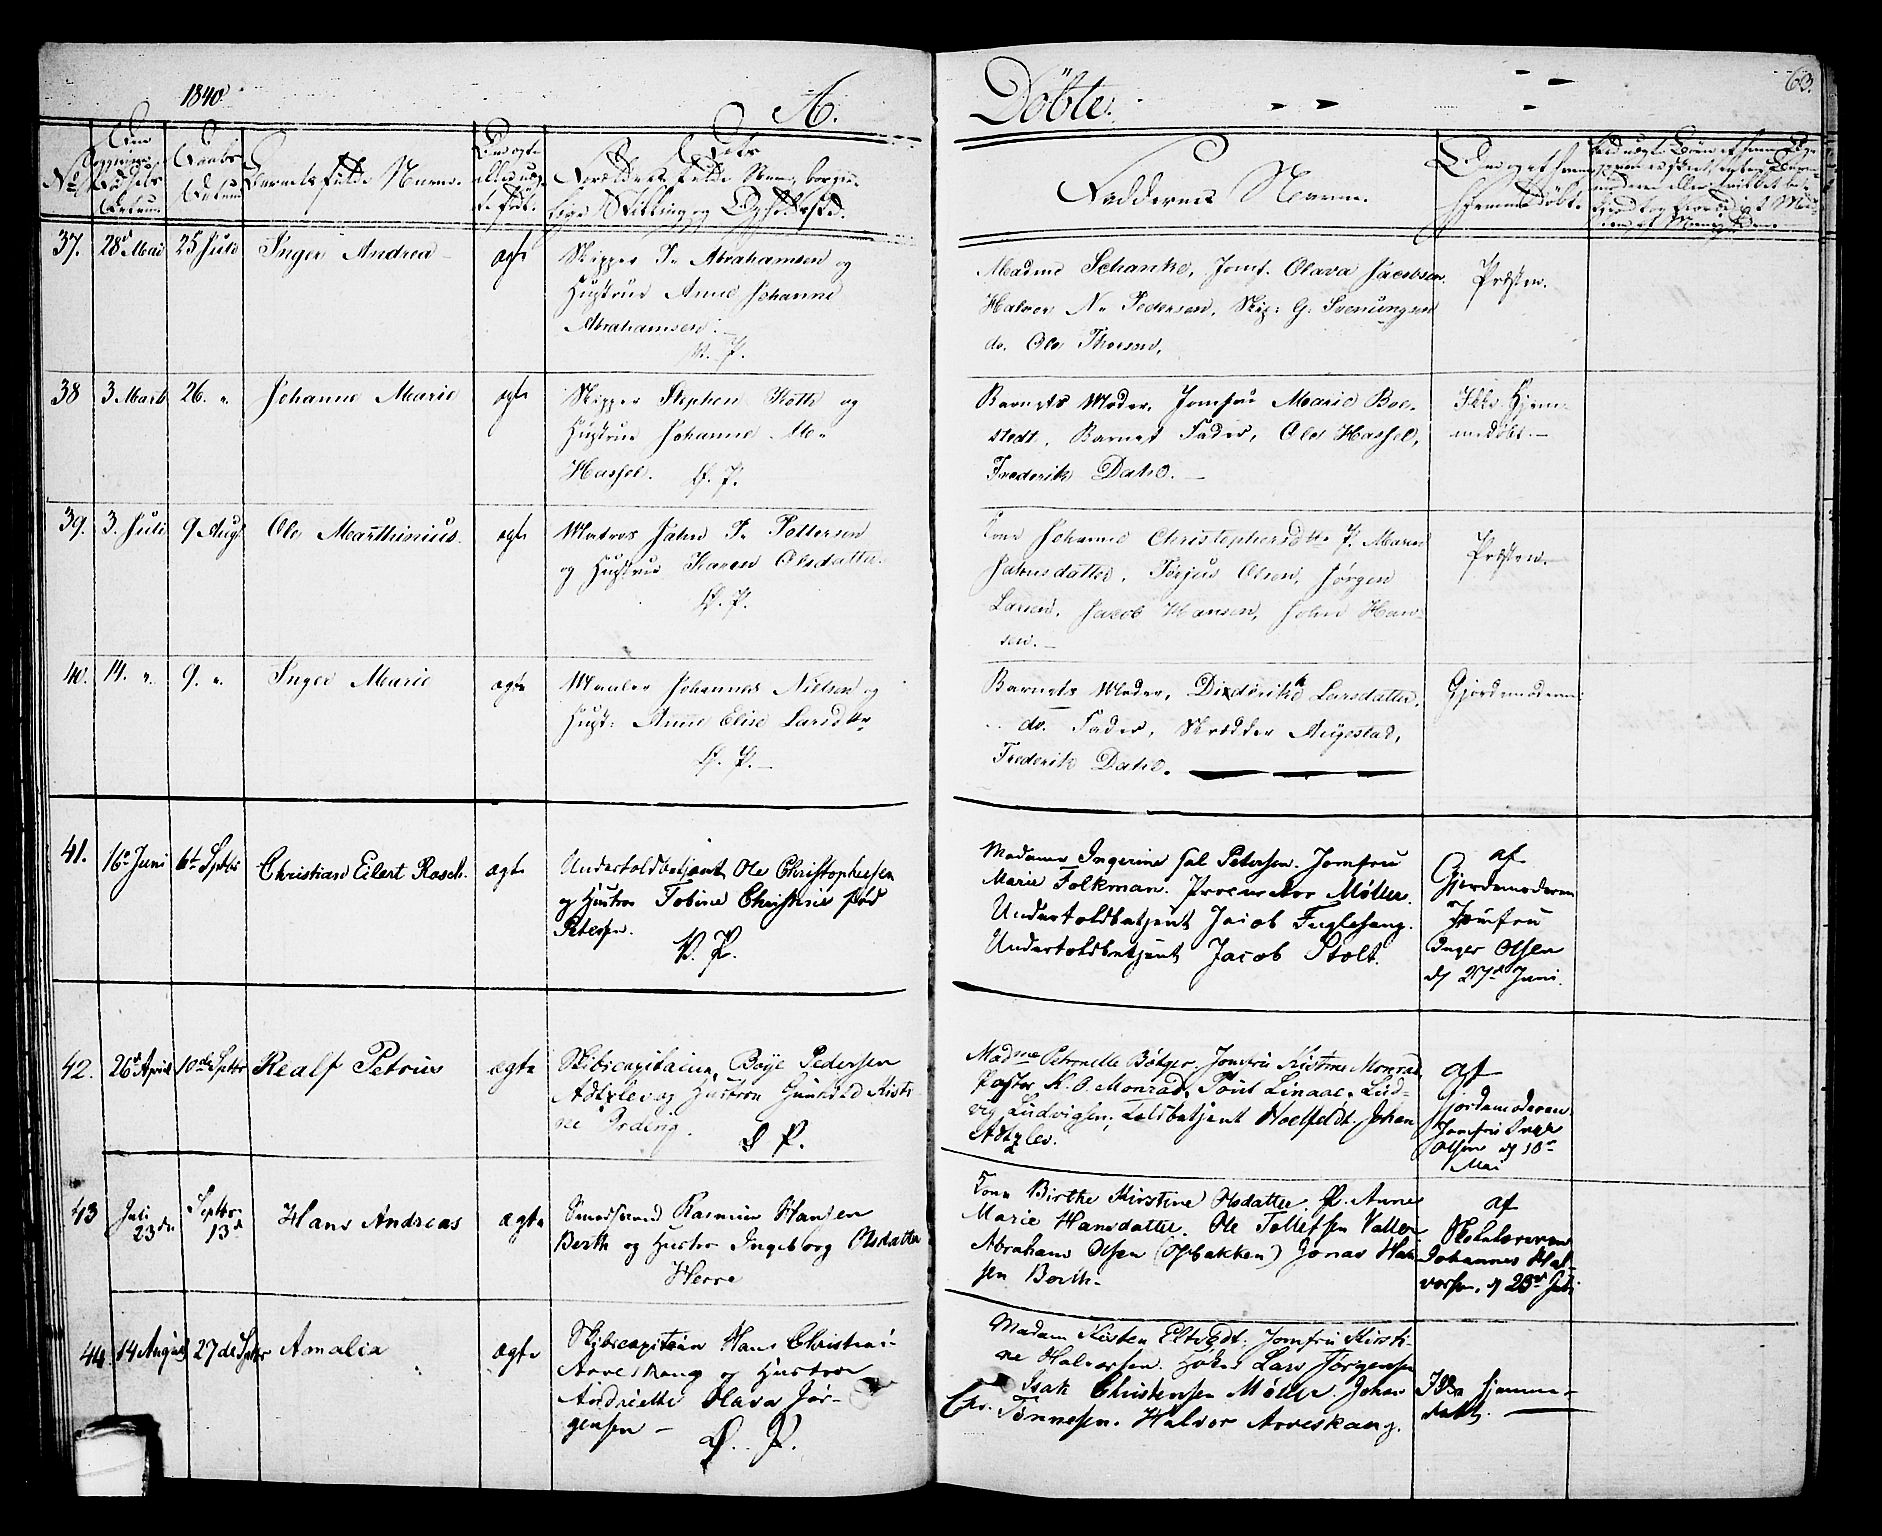 1840
A.
Döbte.
63.
No.
Barnets fulde Navn.
Faddernes Navne.
37. 28d Mai 25 Juli Inger Andrea ægte Skipper Abrahamsen og
Hustrue Anne Johanne
Abrahamsen.
V. P.
Madme Schanke, Jomf. Olava Jacobsen
Halvor N. Pedersen, Skip: G. Svenungsen
do. Ole Thorsen.
Præsten.
38 3 Marts 26. " Johanne Marie ægte Skipper Stephen og
Hustrue Johanne M.
Hassel. Ø. P.
Barnets Moder, Jomfru Marie Boe-
stedt, Barnets Fader, Ole Hassel,
Frederik Dahl.
Ikke Hjem-
medøbt.
39. 3. Juli 9 Aug Ole Marthinius ægte Matros John Tollersen
og Hustrue Karen Olsdatter
Ø. P.
Kone Johanne Christophersdtr P. Maren
Jahnsdatter, Terjus Olsen, Jørgen
Larsen, Jacob Hansen, John Han-
sen.
Præsten.
40. 14. " 9. " Inger Marie ægte Maler Johannes Nielsen og
Hust: Anne Elise Larsdtr
Ø. P.
Barnets Moder, Didderikk Larsdatter,
do. Fader, Skrædder Augestad,
Frederik Dahl.
Gjordemoderen
41. 16de Juni 6te Septbr Christian Eilert Rosch. ægte Undertoldbetjent Ole Christophersen
og Hustroe Tobine Christine fød
Petersen.
V. P.
Madame Ingerine sal Petersen. Jomfru
Marie Folkman. Procurator Møller.
Undertoldbetjent Jacob Fuglesang.
Undertoldbetjent Jacob Stolt.
af
Gjordemoderen
Jomfru
Inger Olsen
d. 27d Juni.
42. 26d April 10de Septbr Realf Petrus ægte Skibscapitain Boye Pedersen
Adtzlev og Hustroe Gunhild Kisti-
ne Ording.
Ø P.
Madme Petronelle Bøtger. Jomfru Kistine Monrad
Pastor K. O. Monrad, Poul Linaae. Lud-
vig Ludvigsen, Toldbetjent Hoelfeldt. Johan
Adtzlev.
af
Gjordemoderen
Jomfru Inger
Olsen d 10de
Mai
43 Juli 23de Septbr 13d Hans Andreas ægte Smedsvend Rasmus Hansen
Berth og Hustro Ingeborg Olsdatter
Herre
Kone Birthe Kirstine Olsdatter. P. Anne
Marie Hansdatter. Ole Tollefsen Valler
Abraham Olsen (Osebakken) Jonas Han
sen Borth.
af
Skolelæreren
Johannes Hal-
vorsen, d 23d Juli
44. 14 August 27de Septbr Amalia ægte Skibscapitain Hans Christian
Arveskoug og Hustroe
Andriette Olava Jør-
gensen
Ø. P.
Madam Kisten Eltvedt. Jomfru Kirsti-
ne Halvorsen. Høker Lars Jørgensen
Isak Christensen Møller. Johan
Chr. Tønnesen. Halvor Arveskoug.
Ikke hjemme-
døbt.